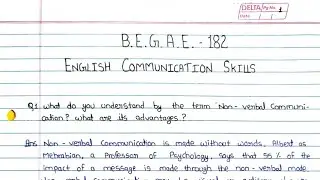 DELTA Pg No. 1
B.E.G.A.E. - 182
ENGLISH COMMUNICATION SKILLS
Q1 what do you understand by the term Non-verbal Communi-
cation? what are its advantages?
Ans Non-verbal Communication is made without words, Albert as
Mehrabian, a Professor of Psychology, says that 55% of the
impact of a message is made through the non-verbal mode.